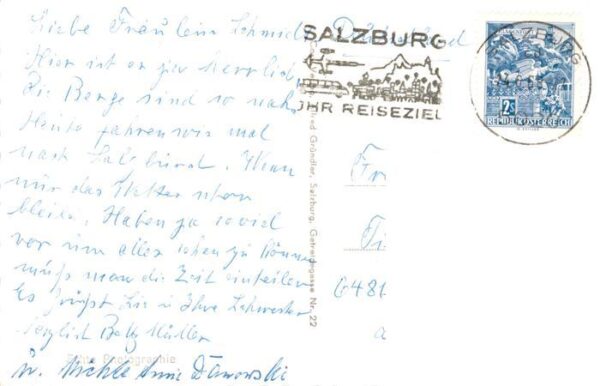 Liebe Fräulein Schmid
Hier ist es ja herrlich
Die Berge sind so nah,
Heute fahren wir mal
nach Salzburg. Wenn
nur das Wetter schön
bleibt. Haben ja so viel
vor um alles sehen zu können
muß man die Zeit einteilen
Es grüßt Sie u Ihre Schwester
herzlich Betty Müller
u. Anni
Echte Photographie
SALZBURG
IHR REISEZIEL
Gründler, Salzburg, Getreidegasse Nr. 22
2S
REPUBLIK ÖSTERREICH
Fr
6481